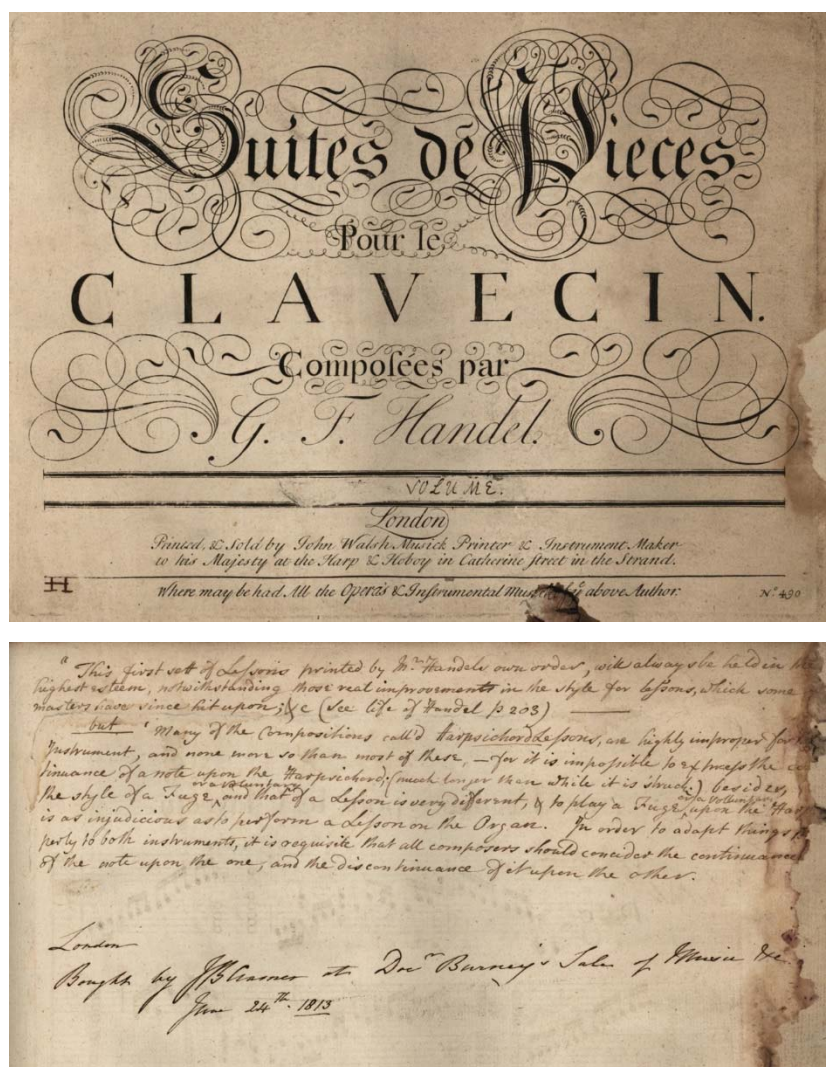 Suites de Pieces
Pour le
CLAVECIN.
Composées par
G. F. Handel.
VOLUME.
London
Printed, & Sold by John Walsh Musick Printer & Instrument Maker
to his Majesty at the Harp & Hoboy in Catherine street in the Strand.
H
Where may be had, All the Opera's & Instrumental Musick by above Author.
No. 490
"This first sett of Lessons printed by Mr. Handels own order, will always be held in the
highest esteem, notwithstanding those real improvements in the style for lessons, which some
masters have since hit upon; &c (see life of Handel p 203)
but ' Many of the Compositions call'd Harpsichord Lessons, are highly improper for
Instrument, and none more so than most of these, – for it is impossible to express the con
tinuance of a note upon the Harpsichord; (much longer than while it is struck) besides,
or a voluntary
the style of a Fuge and that of a Lesson is very different, & to play a Fuge upon the Harp
is as injudicious as to perform a Lesson on the Organ. In order to adapt things
perly to both instruments, it is requisite that all composers should concider the continuance
of the note upon the one, and the discontinuance of it upon the other.
London
Bought by JB Cramer at Docr Burney's Sale of Music &c.
June 24th. 1813